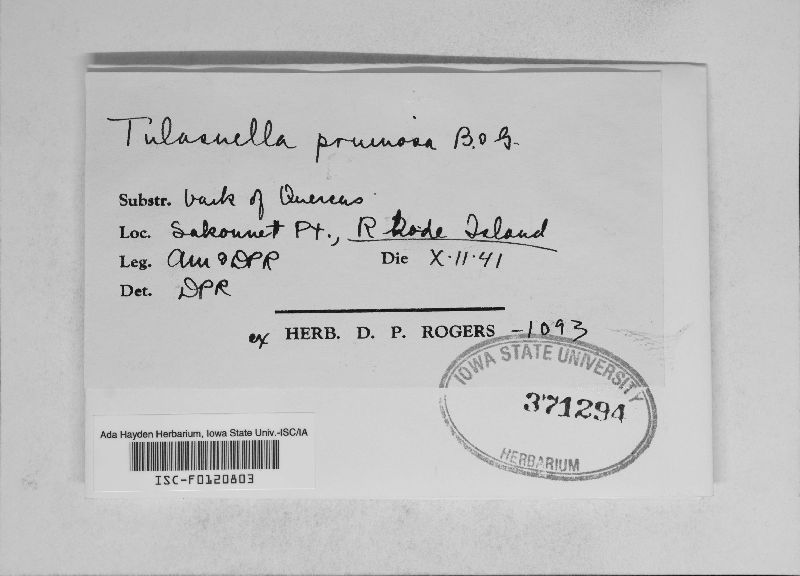 Tulasnella pruinosa B. & G.
Substr. bark of Quercus
Loc. Sakonnet Pt., Rhode Island
Leg. AM & DPR Die X·11·41
Det. DPR
ex HERB. D. P. ROGERS -1093
IOWA STATE UNIVERSITY
371294
HERBARIUM
Ada Hayden Herbarium, Iowa State Univ.-ISC/IA
ISC-F0120803